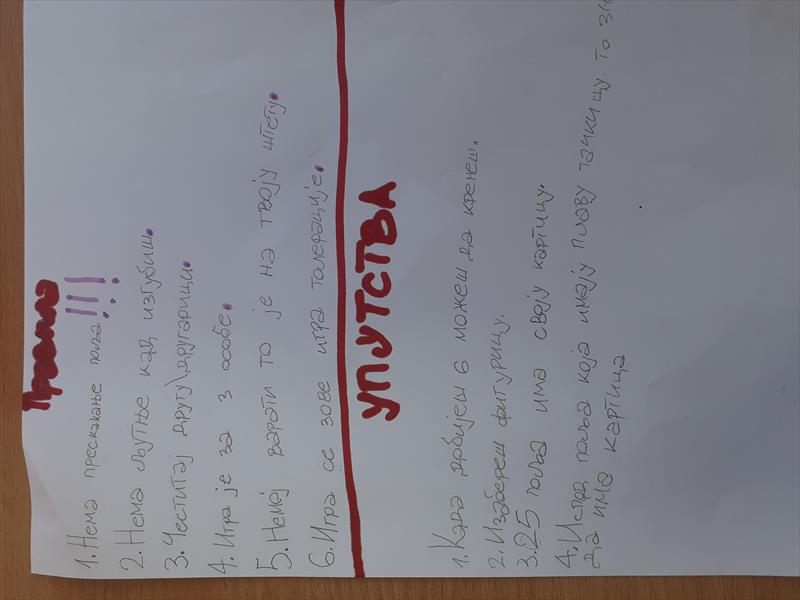 Правила
1. Нема прескакање поља!!!
2. Нема љутње кад изгубиш.
3. Честитај другу\другарици.
4. Игра је за 3 особе.
5. Немој варати то је на твоју штету.
6. Игра се зове игра толерације.
УПУТСТВА
1. Када добијеш 6 можеш да кренеш.
2. Изабереш фигурицу.
3. 25 поља има своју картицу.
4. Испод поља која имају плаву тачкицу. то зн
да има картица